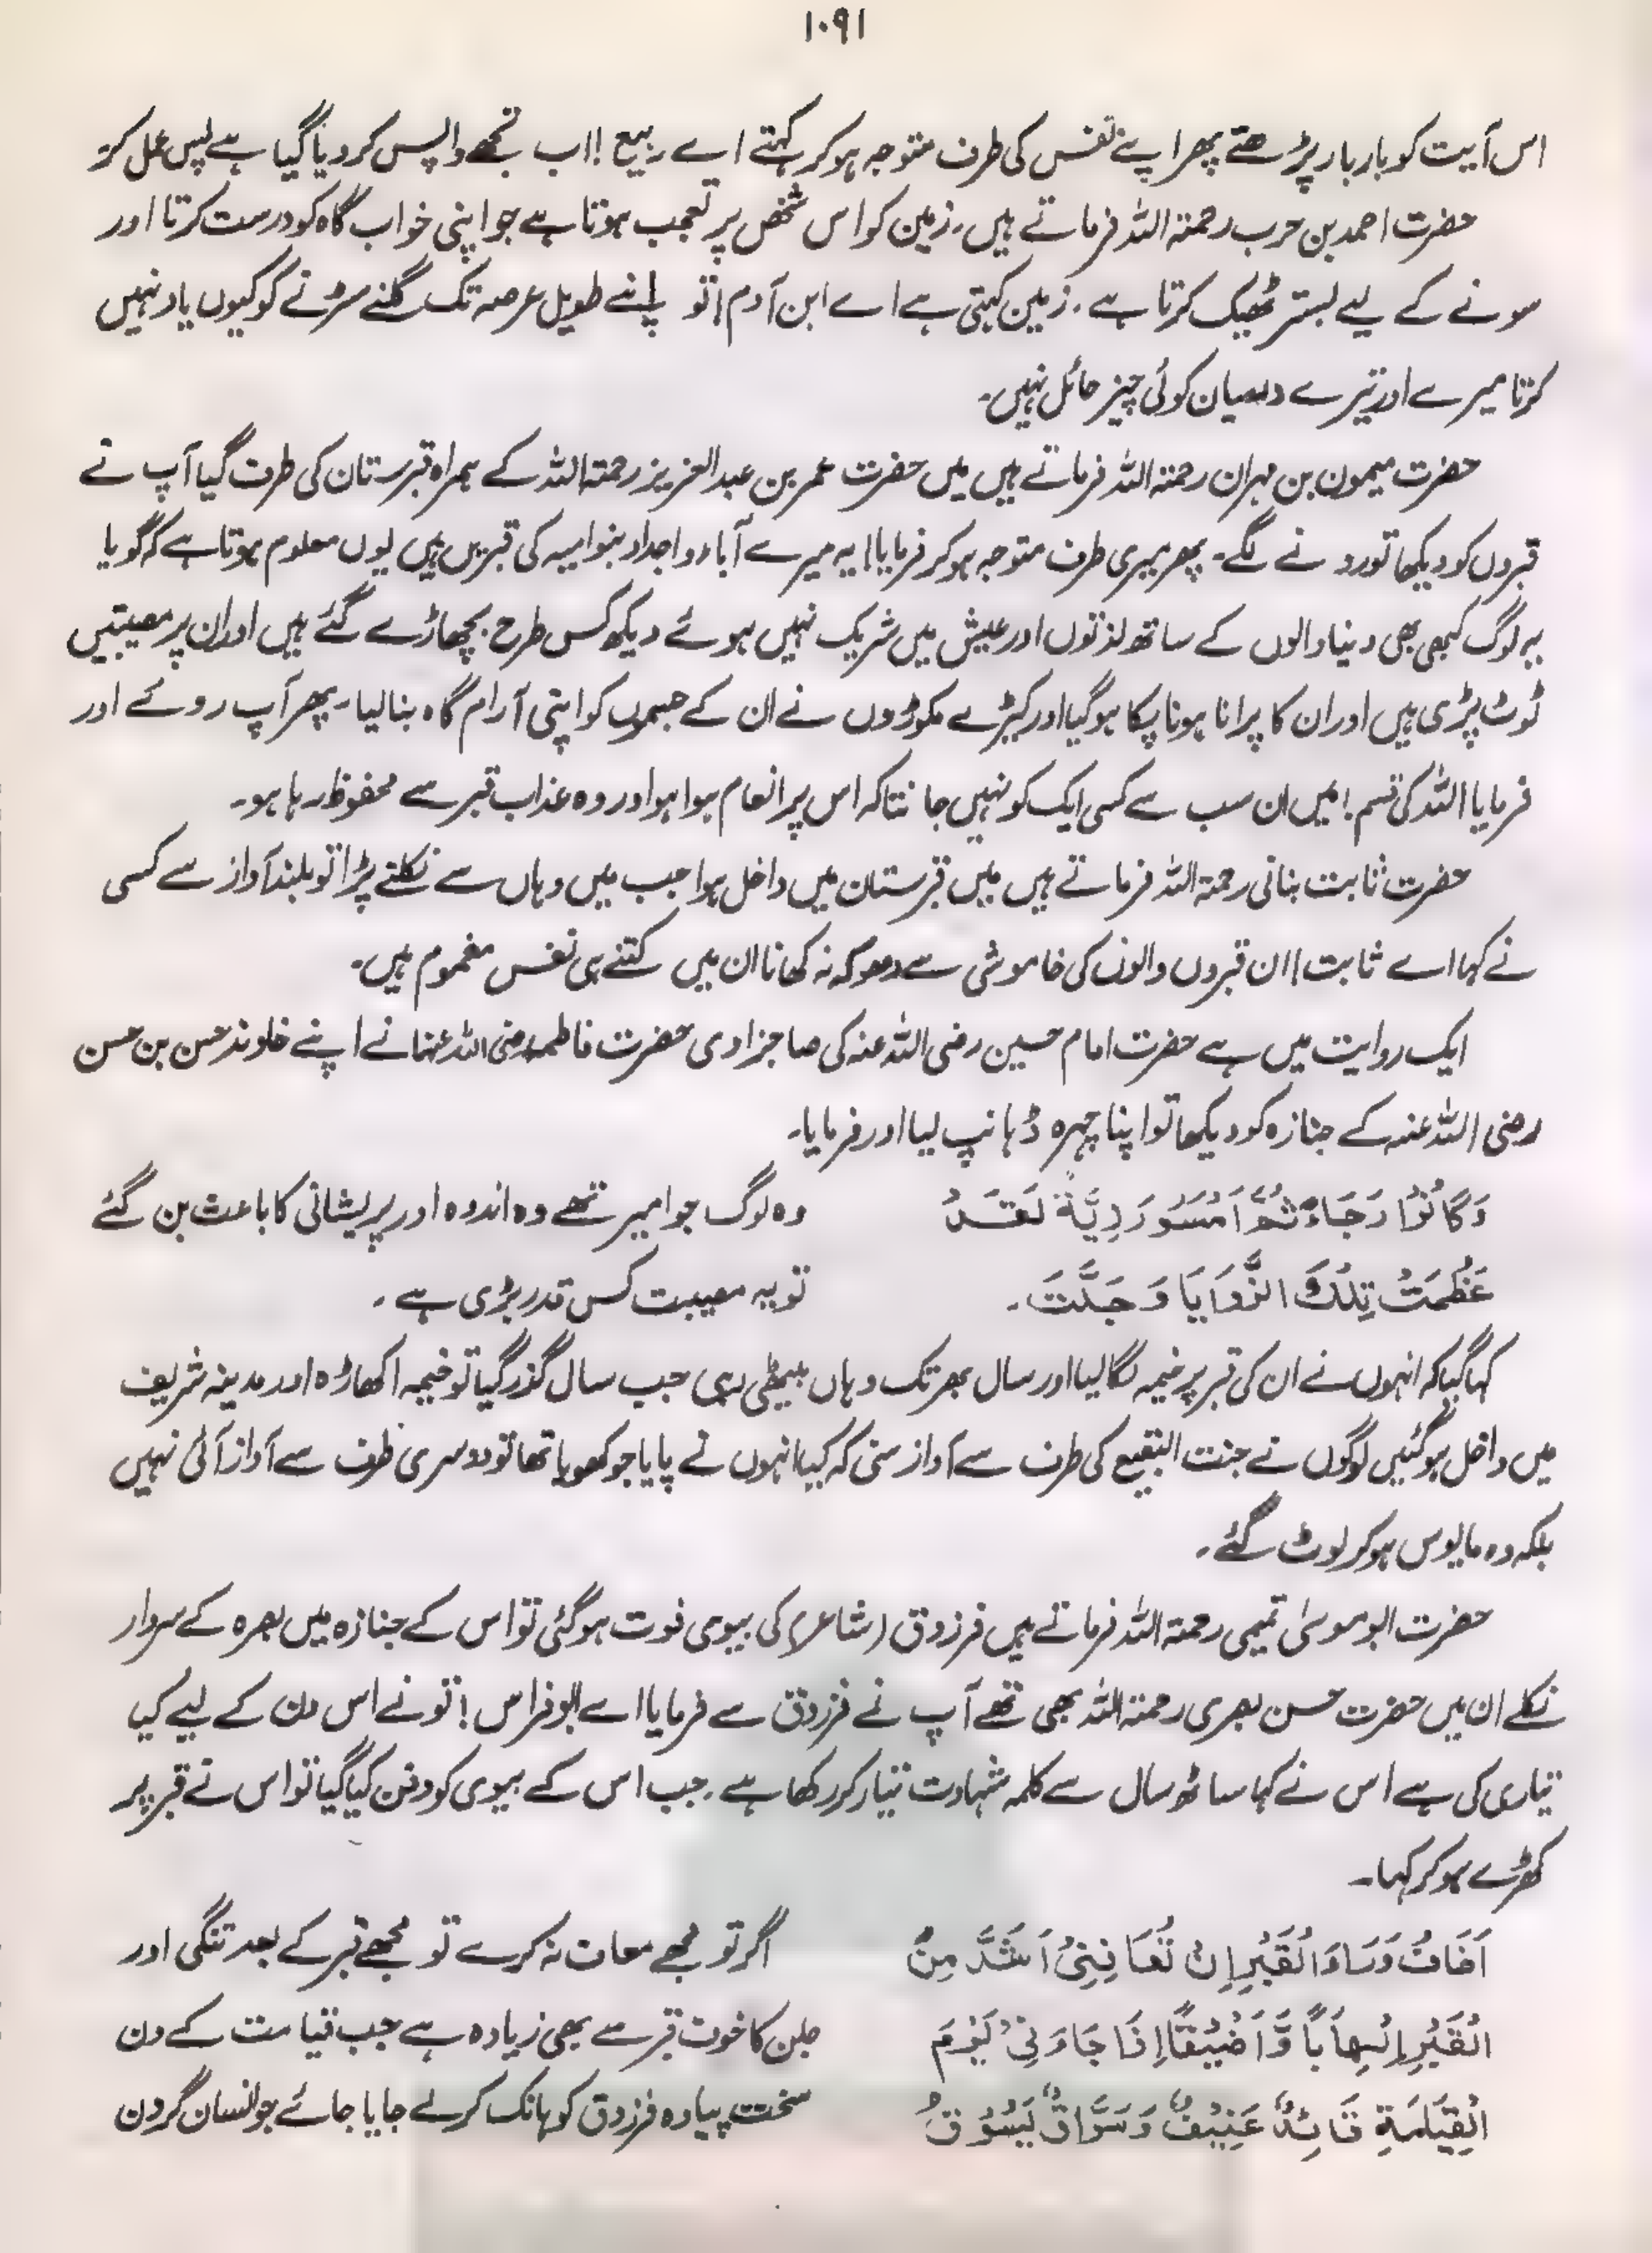 ۱۰۹۱
اس آیت کو بار بار پڑھتے پھر اپنے نفس کی طرف متوجہ ہو کر کہتے اے ربیع ! اب تجھے واپس کر دیا گیا ہے پس عمل کر۔
حضرت احمد بن حرب رحمۃ اللہ فرماتے ہیں، زمین کو اس شخص پر تعجب ہوتا ہے جو اپنی خواب گاہ کو درست کرتا اور
سونے کے لیے بستر ٹھیک کرتا ہے ۔ زمین کہتی ہے اے ابن آدم ! تو اپنے طویل عرصہ تک گلنے سڑنے کو کیوں یاد نہیں
کرتا میرے اور تیرے درمیان کوئی چیز حائل نہیں۔
حضرت میمون بن مہران رحمۃ اللہ فرماتے ہیں میں حضرت عمر بن عبدالعزیز رحمۃ اللہ کے ہمراہ قبرستان کی طرف گیا آپ نے
قبروں کو دیکھا تو رونے لگے۔ پھر میری طرف متوجہ ہو کر فرمایا! یہ میرے آباؤ واجداد بنو امیہ کی قبریں ہیں یوں معلوم ہوتا ہے کہ گویا
یہ لوگ کبھی بھی دنیا والوں کے ساتھ لذتوں اور عیش میں شریک نہیں ہوئے دیکھ کس طرح پچھاڑے گئے ہیں اور ان پر مصیبتیں
ٹوٹ پڑی ہیں اور ان کا پرانا ہونا پکا ہو گیا اور کیڑے مکوڑوں نے ان کے جسموں کو اپنی آرام گاہ بنا لیا۔ پھر آپ روئے اور
فرمایا اللہ کی قسم ! میں ان سب سے کسی ایک کو نہیں جانتا کہ اس پر انعام ہوا ہو اور وہ عذاب قبر سے محفوظ رہا ہو۔
حضرت ثابت بنانی رحمۃ اللہ فرماتے ہیں میں قبرستان میں داخل ہوا جب میں وہاں سے نکلنے پڑا تو بلند آواز سے کسی
نے کہا اے ثابت ! ان قبروں والوں کی خاموشی سے دھوکہ نہ کھانا ان میں کتنے ہی نفس مغموم ہیں۔
ایک روایت میں ہے حضرت امام حسین رضی اللہ عنہ کی صاحبزادی حضرت فاطمہ رضی اللہ عنہا نے اپنے خاوند حسن بن حسن
رضی اللہ عنہ کے جنازہ کو دیکھا تو اپنا چہرہ ڈہانپ لیا اور فرمایا۔
وَكَانُوْا رَجَاءً ثُمَّ اَمْسَوْ رَزِيَّةً لَقَدْ وہ لوگ جو امیر تھے وہ اندوہ اور پریشانی کا باعث بن گئے
عَظُمَتْ تِلْكَ الرَّزَايَا وَ جَلَّتَ ۔ تو یہ مصیبت کس قدر بڑی ہے ۔
کہا گیا کہ انہوں نے ان کی قبر پر خیمہ لگا لیا اور سال بھر تک وہاں بیٹھی رہی جب سال گذر گیا تو خیمہ اکھاڑہ اور مدینہ شریف
میں داخل ہو گئیں لوگوں نے جنت البقیع کی طرف سے آواز سنی کہ کیا انہوں نے پایا جو کھویا تھا تو دوسری طرف سے آواز آئی نہیں
بلکہ وہ مایوس ہو کر لوٹ گئے ۔
حضرت ابو موسیٰ تمیمی رحمۃ اللہ فرماتے ہیں فرزدق (شاعر) کی بیوی فوت ہو گئی تو اس کے جنازہ میں بصرہ کے سردار
نکلے ان میں حضرت حسن بصری رحمۃ اللہ بھی تھے آپ نے فرزدق سے فرمایا اے ابو فراس ! تو نے اس دن کے لیے کیا
تیاری کی ہے اس نے کہا ساٹھ سال سے کلمہ شہادت تیار کر رکھا ہے ۔ جب اس کے بیوی کو دفن کیا گیا تو اس نے قبر پر
کھڑے ہو کر کہا۔
اَخَافُ وَرَاءَ الْقَبْرِ اِنْ تُعَافِنِىْ اَشَدَّ مِنَ اگر تو مجھے معاف نہ کرے تو مجھے قبر کے بعد تنگی اور
الْقَبْرِ اِلْتِهَابًا وَّاَضْيَقًا اِذَا جَاءَنِىْ يَوْمَ جلن کا خوف قبر سے بھی زیادہ ہے جب قیامت کے دن
الْقِيَامَةِ قَائِدٌ عَنِيْفٌ وَسَوَّاقٌ يَسُوْقُ سخت پیادہ فرزدق کو ہانک کر لے جایا جائے جو انسان گردن